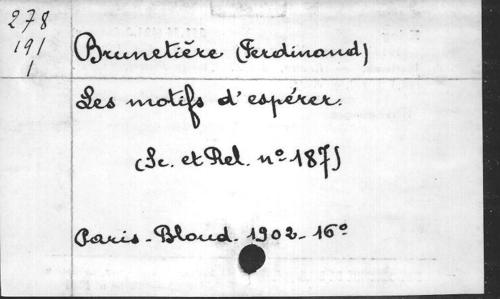 278
191
1
Brunetière (Ferdinand)
Les motifs d'espérer.
(Sc. et Rel. nº 187)
Paris - Bloud. 1902 - 16º